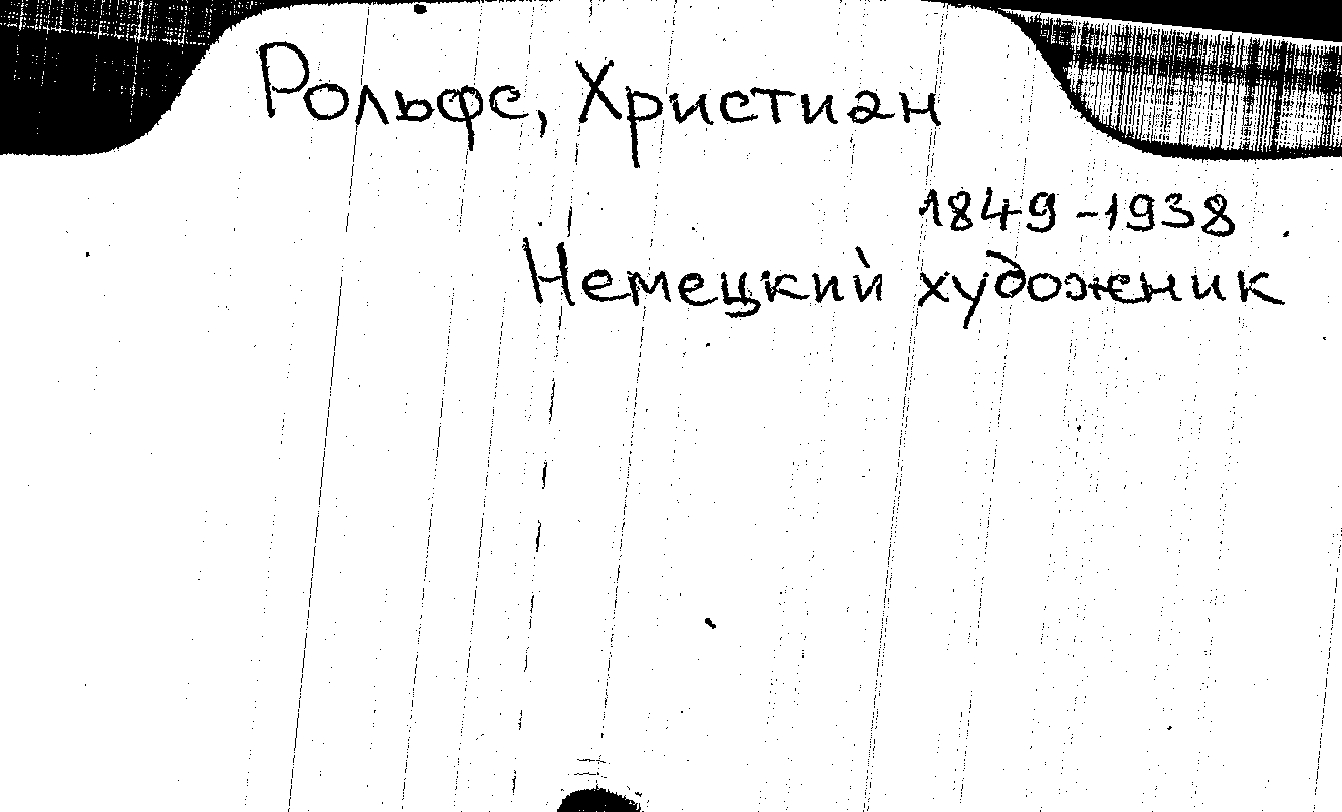 Рольфс, Христиан
1849-1938
Немецкий художник